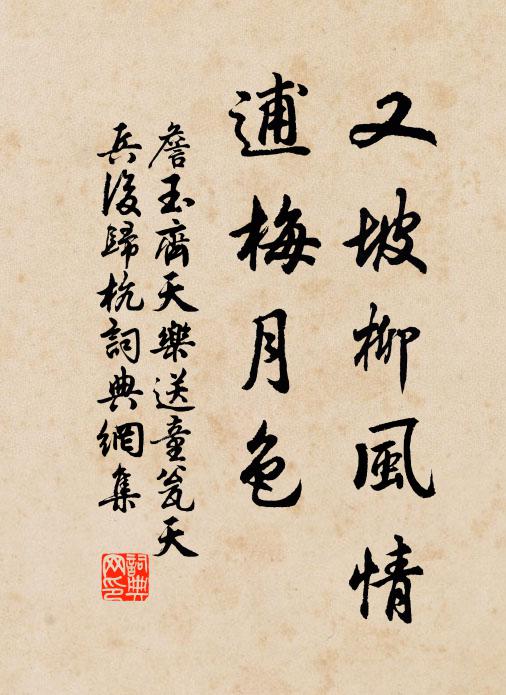 又坡柳風情
逋梅月色
詹玉齊天樂送童瓮天
兵後歸杭詞典網集
詞典
网印